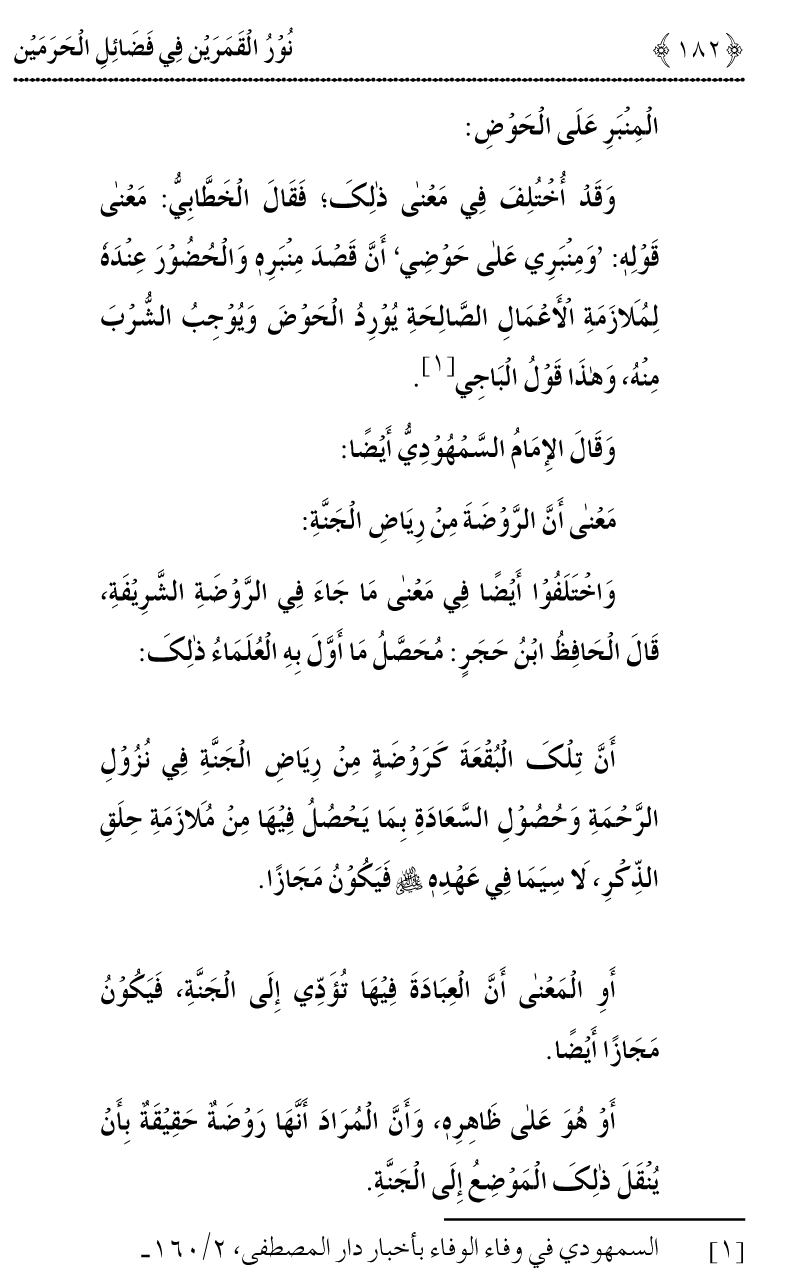 ﴿١٨٢﴾ نُوْرُ الْقَمَرَيْن فِي فَضَائِلِ الْحَرَمَيْن
الْمِنْبَرِ عَلَى الْحَوْضِ:
وَقَدْ أُخْتُلِفَ فِي مَعْنٰى ذٰلِكَ؛ فَقَالَ الْخَطَّابِيُّ: مَعْنٰى
قَوْلِهٖ: ’وَمِنْبَرِي عَلٰى حَوْضِي‘ أَنَّ قَصْدَ مِنْبَرِهٖ وَالْحُضُوْرَ عِنْدَهٗ
لِمُلَازَمَةِ الْأَعْمَالِ الصَّالِحَةِ يُوْرِدُ الْحَوْضَ وَيُوْجِبُ الشُّرْبَ
مِنْهُ، وَهٰذَا قَوْلُ الْبَاجِي[١].
وَقَالَ الإِمَامُ السَّمْهُوْدِيُّ أَيْضًا:
مَعْنٰى أَنَّ الرَّوْضَةَ مِنْ رِيَاضِ الْجَنَّةِ:
وَاخْتَلَفُوْا أَيْضًا فِي مَعْنٰى مَا جَاءَ فِي الرَّوْضَةِ الشَّرِيْفَةِ،
قَالَ الْحَافِظُ ابْنُ حَجَرٍ: مُحَصَّلُ مَا أَوَّلَ بِهِ الْعُلَمَاءُ ذٰلِكَ:
أَنَّ تِلْكَ الْبُقْعَةَ كَرَوْضَةٍ مِنْ رِيَاضِ الْجَنَّةِ فِي نُزُوْلِ
الرَّحْمَةِ وَحُصُوْلِ السَّعَادَةِ بِمَا يَحْصُلُ فِيْهَا مِنْ مُلَازَمَةِ حِلَقِ
الذِّكْرِ، لَا سِيَمَا فِي عَهْدِهٖ ﷺ فَيَكُوْنُ مَجَازًا.
أَوِ الْمَعْنٰى أَنَّ الْعِبَادَةَ فِيْهَا تُؤَدِّي إِلَى الْجَنَّةِ، فَيَكُوْنُ
مَجَازًا أَيْضًا.
أَوْ هُوَ عَلٰى ظَاهِرِهٖ، وَأَنَّ الْمُرَادَ أَنَّهَا رَوْضَةٌ حَقِيْقَةٌ بِأَنْ
يُنْقَلَ ذٰلِكَ الْمَوْضِعُ إِلَى الْجَنَّةِ.
[١] السمهودي في وفاء الوفاء بأخبار دار المصطفى، ٢/١٦٠ـ